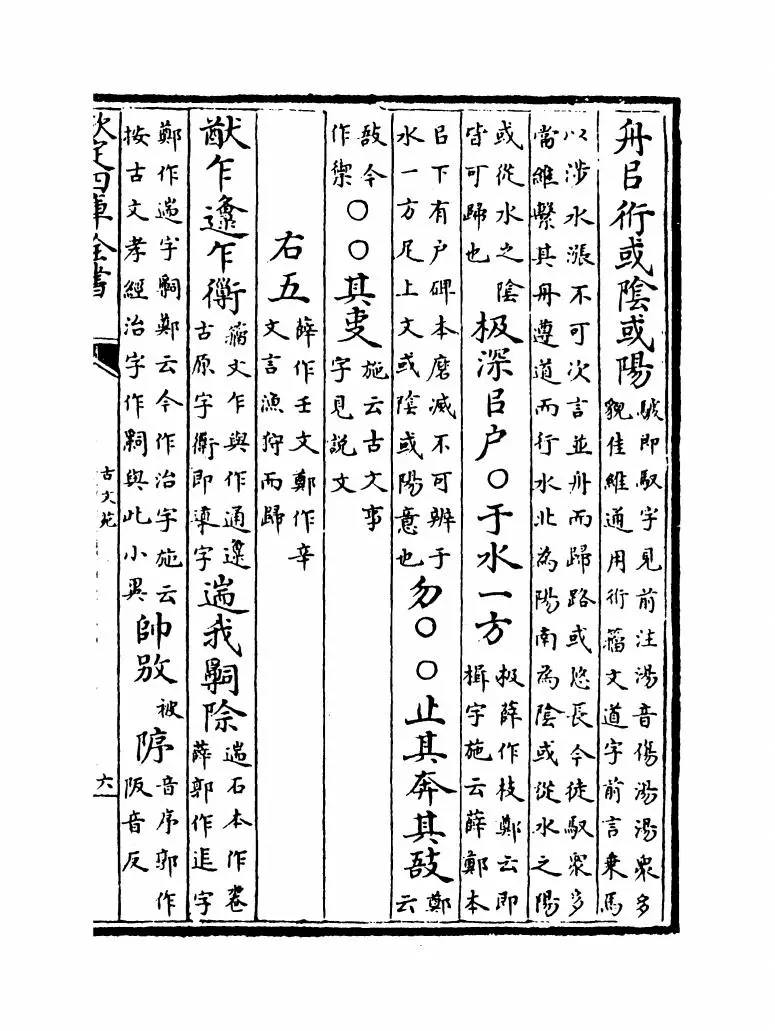 舟㠯術或陰或陽駛即馭字見前注湯音傷湯湯衆多貌佳維通用術籀文道字前言乗馬
以涉水漲不可次言並舟而歸路或悠長今徒馭衆多當維繫其舟遵道而行水北為陽南為陰或從水之陽
或從水之陰皆可歸也极深㠯户○于水一方极薛作枝鄭云即楫字施云薛鄭本
㠯下有户碑本磨滅不可辨于水一方凥上文或陰或陽意也勿○○止其奔其敔鄭云
敔今作禦○○其叓施云古文事字見説文
右五薛作壬文鄭作辛文言漁狩而歸
猷乍邍乍衜籀文乍與作通邍古原字衜即道字遄我嗣除遄石本作䢔薛郭作追字
鄭作遄字嗣鄭云今作治字施云按古文孝經治字作嗣與此小異帥㕟被䧝音序郭作阪音反
欽定四庫全書
古文苑
六